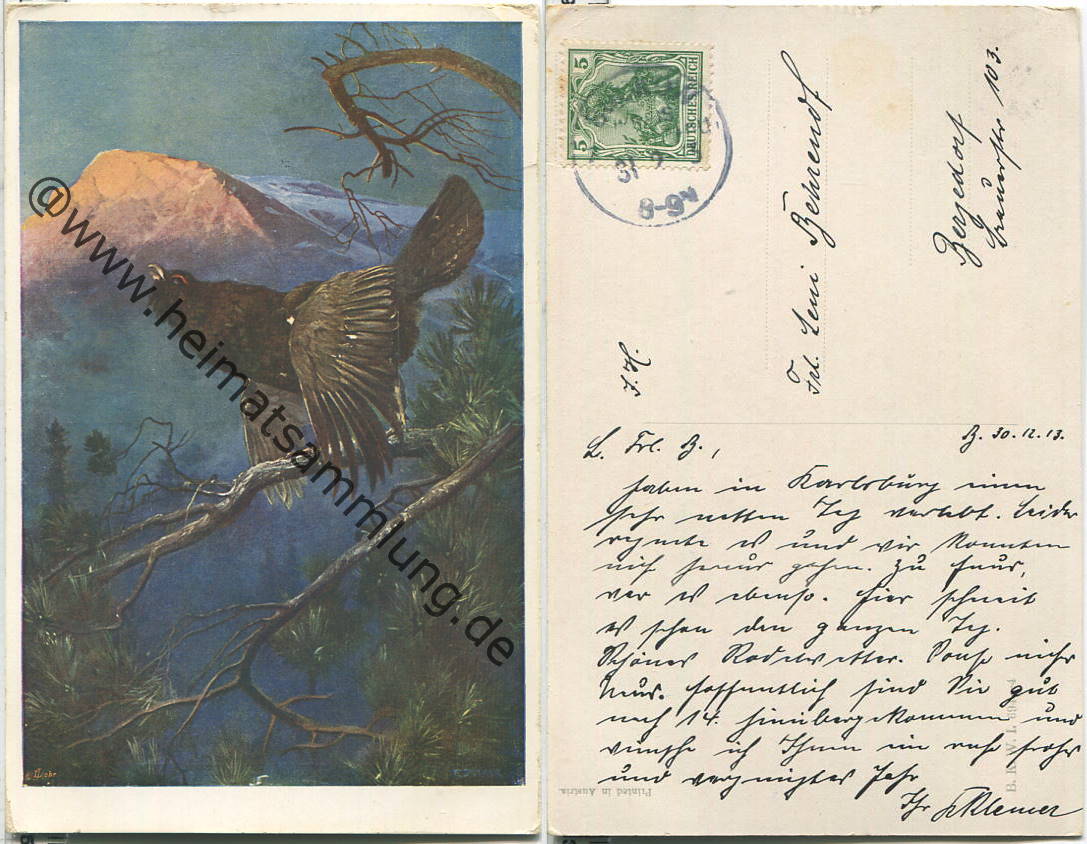 @www.heimatsammlung.de
5
5
DEUTSCHES REICH
31
8-9N
Frl. Leni Behrendt
Bergedorf
103.
F. H.
B. 30.12.13.
L. Frl. B.,
haben in Karlsburg einen
sehr netten Tag verlebt. Leider
regnete es und wir konnten
nicht heraus gehen. Zu Haus,
war es ebenso. Hier schneit
es schon den ganzen Tag.
Schönes Rodelwetter. Sonst nichts
Neues. Hoffentlich sind Sie gut
nach 14. hinübergekommen und
wünsche ich Ihnen ein recht frohes
und vergnügtes Jahr
Ihr Klemer
Printed in Austria.
B. K. W. I.